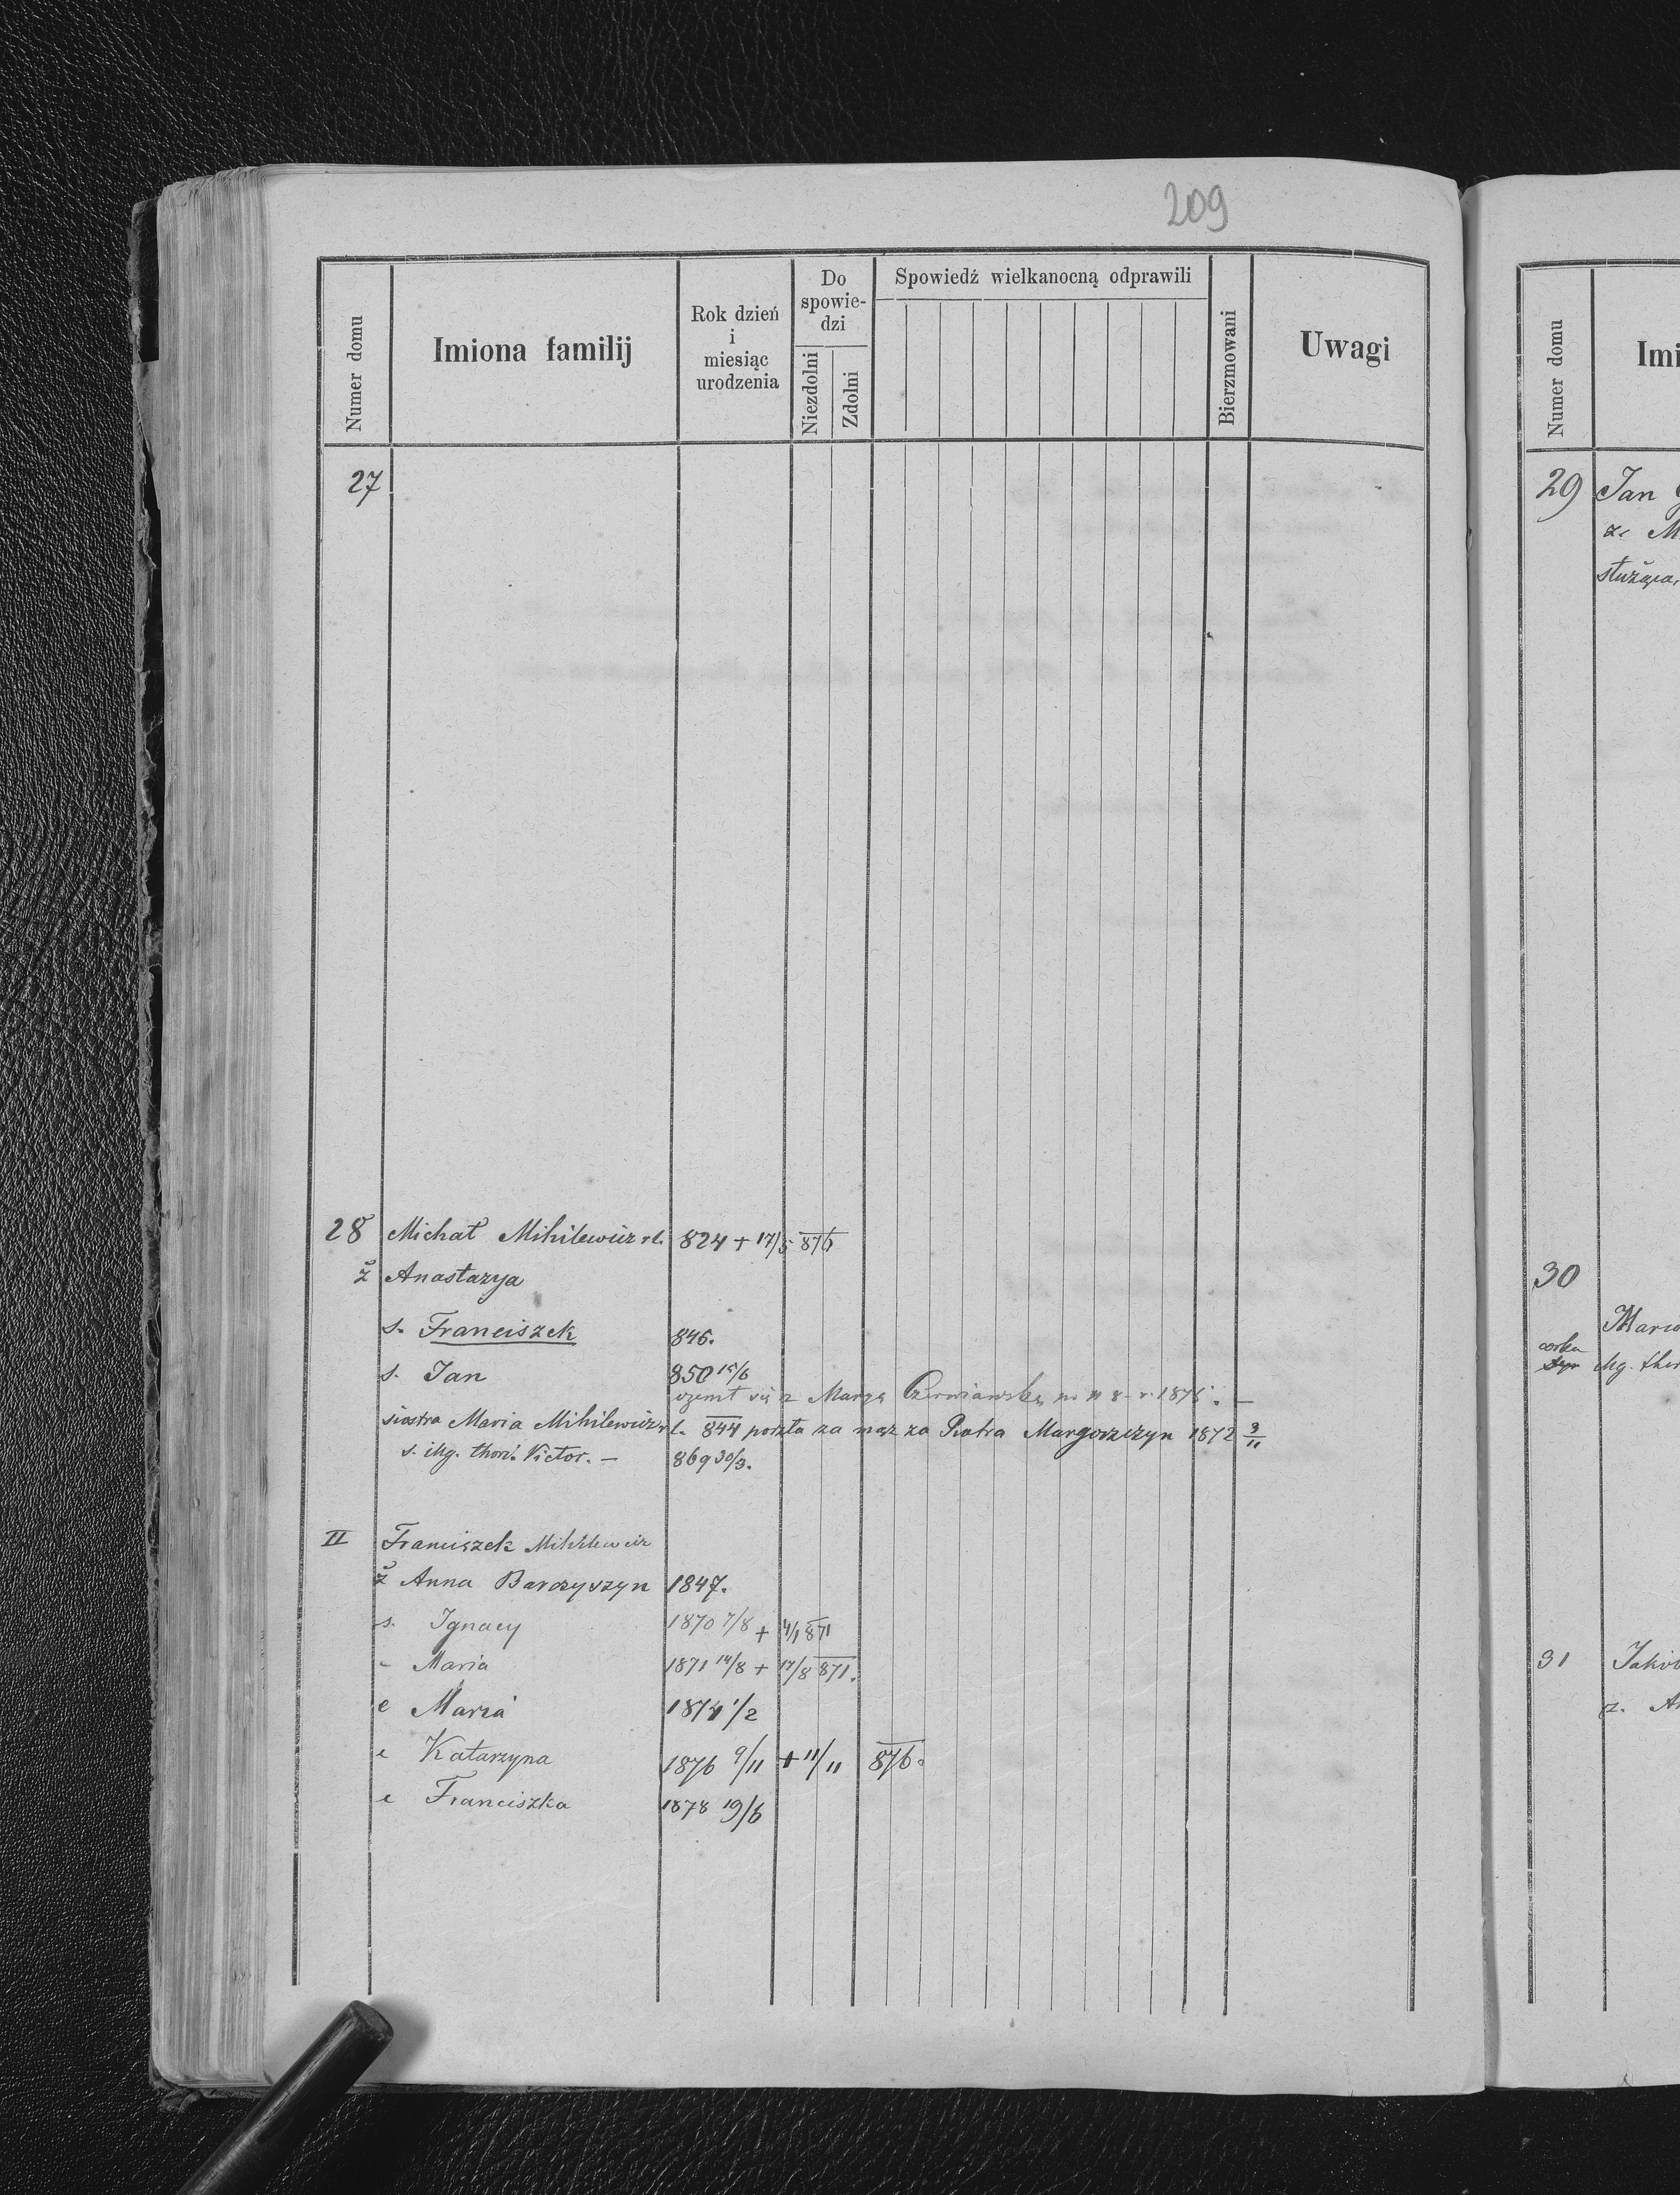 209
Numer domu
Imiona familij
Rok dzień
i
miesiąc
urodzenia
Do
spowie-
dzi
Niezdolni
Zdolni
Spowiedź wielkanocną odprawili
Bierzmowani
Uwagi
27
28 Michał Mihilewicz rl. 824 + 17/5 876
ż Anastazya
s. Franciszek 846.
s. Jan 850 15/6
ożenił się z Maryą Czerwiawską 8 r. 1875. —
siostra Maria Mihilewicz rl. 844 poszła za mąż za Piotra Margorzczyn 1872 3/11
s. illg. thori Victor. — 869 30/3.
II Franciszek Mihilewicz
ż Anna Barczyszyn 1847.
s. Ignacy 1870 7/8 + 4/1 871
- Maria 1871 14/8 + 17/8 871.
c Marya 1874 1/2
c Katarzyna 1876 9/11 + 11/11 876.
c Franciszka 1878 19/6
Numer domu
Imi
29 Jan
ż. M
służąca
30
Mary
córka
illg. thor
31 Jakób
ż. A